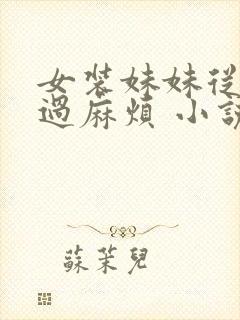 女装妹妹從
過麻煩 小説
蘇茉兒